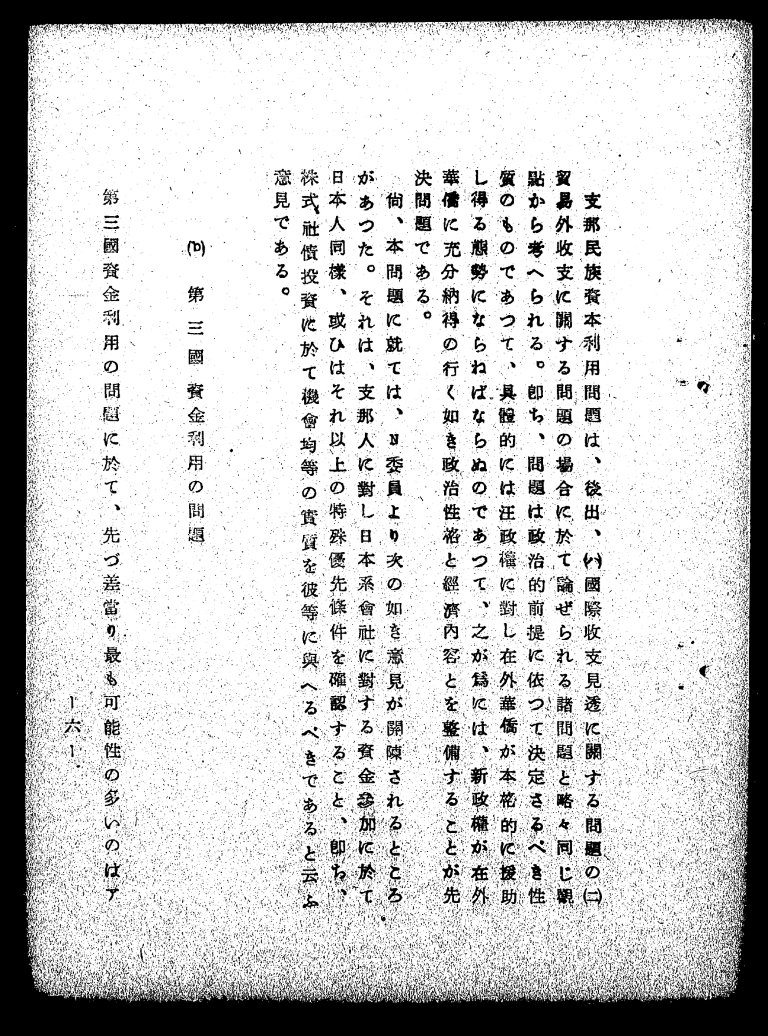 支那民族資本利用問題は、後出、(ハ)國際收支見透に關する問題の(二)
貿易外收支に關する問題の場合に於て論ぜられる諸問題と略々同じ觀
點から考へられる。卽ち、問題は政治的前提に依つて決定さるべき性
質のものであつて、具體的には汪政權に對し在外華僑が本格的に援助
し得る態勢にならねばならぬのであつて、之が爲には、新政權が在外
華僑に充分納得の行く如き政治性格と經濟內容とを整備することが先
決問題である。
尙、本問題に就ては、N委員より次の如き意見が開陳されるところ
があつた。それは、支那人に對し日本系會社に對する資金參加に於て
日本人同樣、或ひはそれ以上の特殊優先條件を確認すること、卽ち、
株式、社債投資に於て機會均等の實質を彼等に與へるべきであると云ふ
意見である。
(b) 第三國資金利用の問題
第三國資金利用の問題に於て、先づ差當り最も可能性の多いのはア
—六—